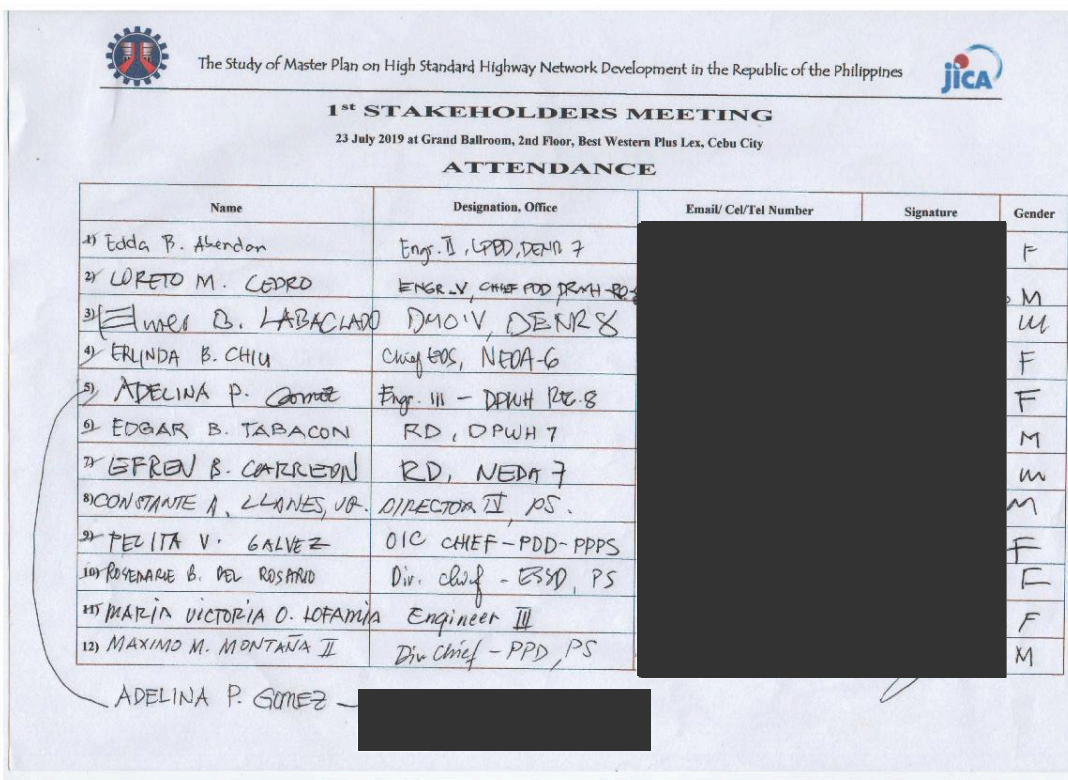 The Study of Master Plan on High Standard Highway Network Development in the Republic of the Philippines
JICA
1st STAKEHOLDERS MEETING
23 July 2019 at Grand Ballroom, 2nd Floor, Best Western Plus Lex, Cebu City
ATTENDANCE
Name Designation, Office Email/ Cel/Tel Number Signature Gender
1) Edda B. Abendan Engr. II, LPDD, DENR 7 F
2) LORETO M. CEDRO ENGR_V, CHIEF POD DPWH-RO-8 M
3) Elmer B. LABACLADO DMO IV, DENR 8 M
4) ERLINDA B. CHIU Chief EDS, NEDA-6 F
5) ADELINA P. Gomez Engr. III - DPWH REG. 8 F
6) EDGAR B. TABACON RD, DPWH 7 M
7) EFREN B. CARREON RD, NEDA 7 M
8) CONSTANTE A. LLANES, JR. DIRECTOR IV, PS. M
9) PELITA V. GALVEZ OIC CHIEF-PDD-PPPS F
10) ROSEMARIE B. DEL ROSARIO Div. Chief - ESSD, PS F
11) MARIA VICTORIA O. LOFAMIA Engineer III F
12) MAXIMO M. MONTAÑA II Div Chief - PPD, PS M
ADELINA P. GOMEZ -